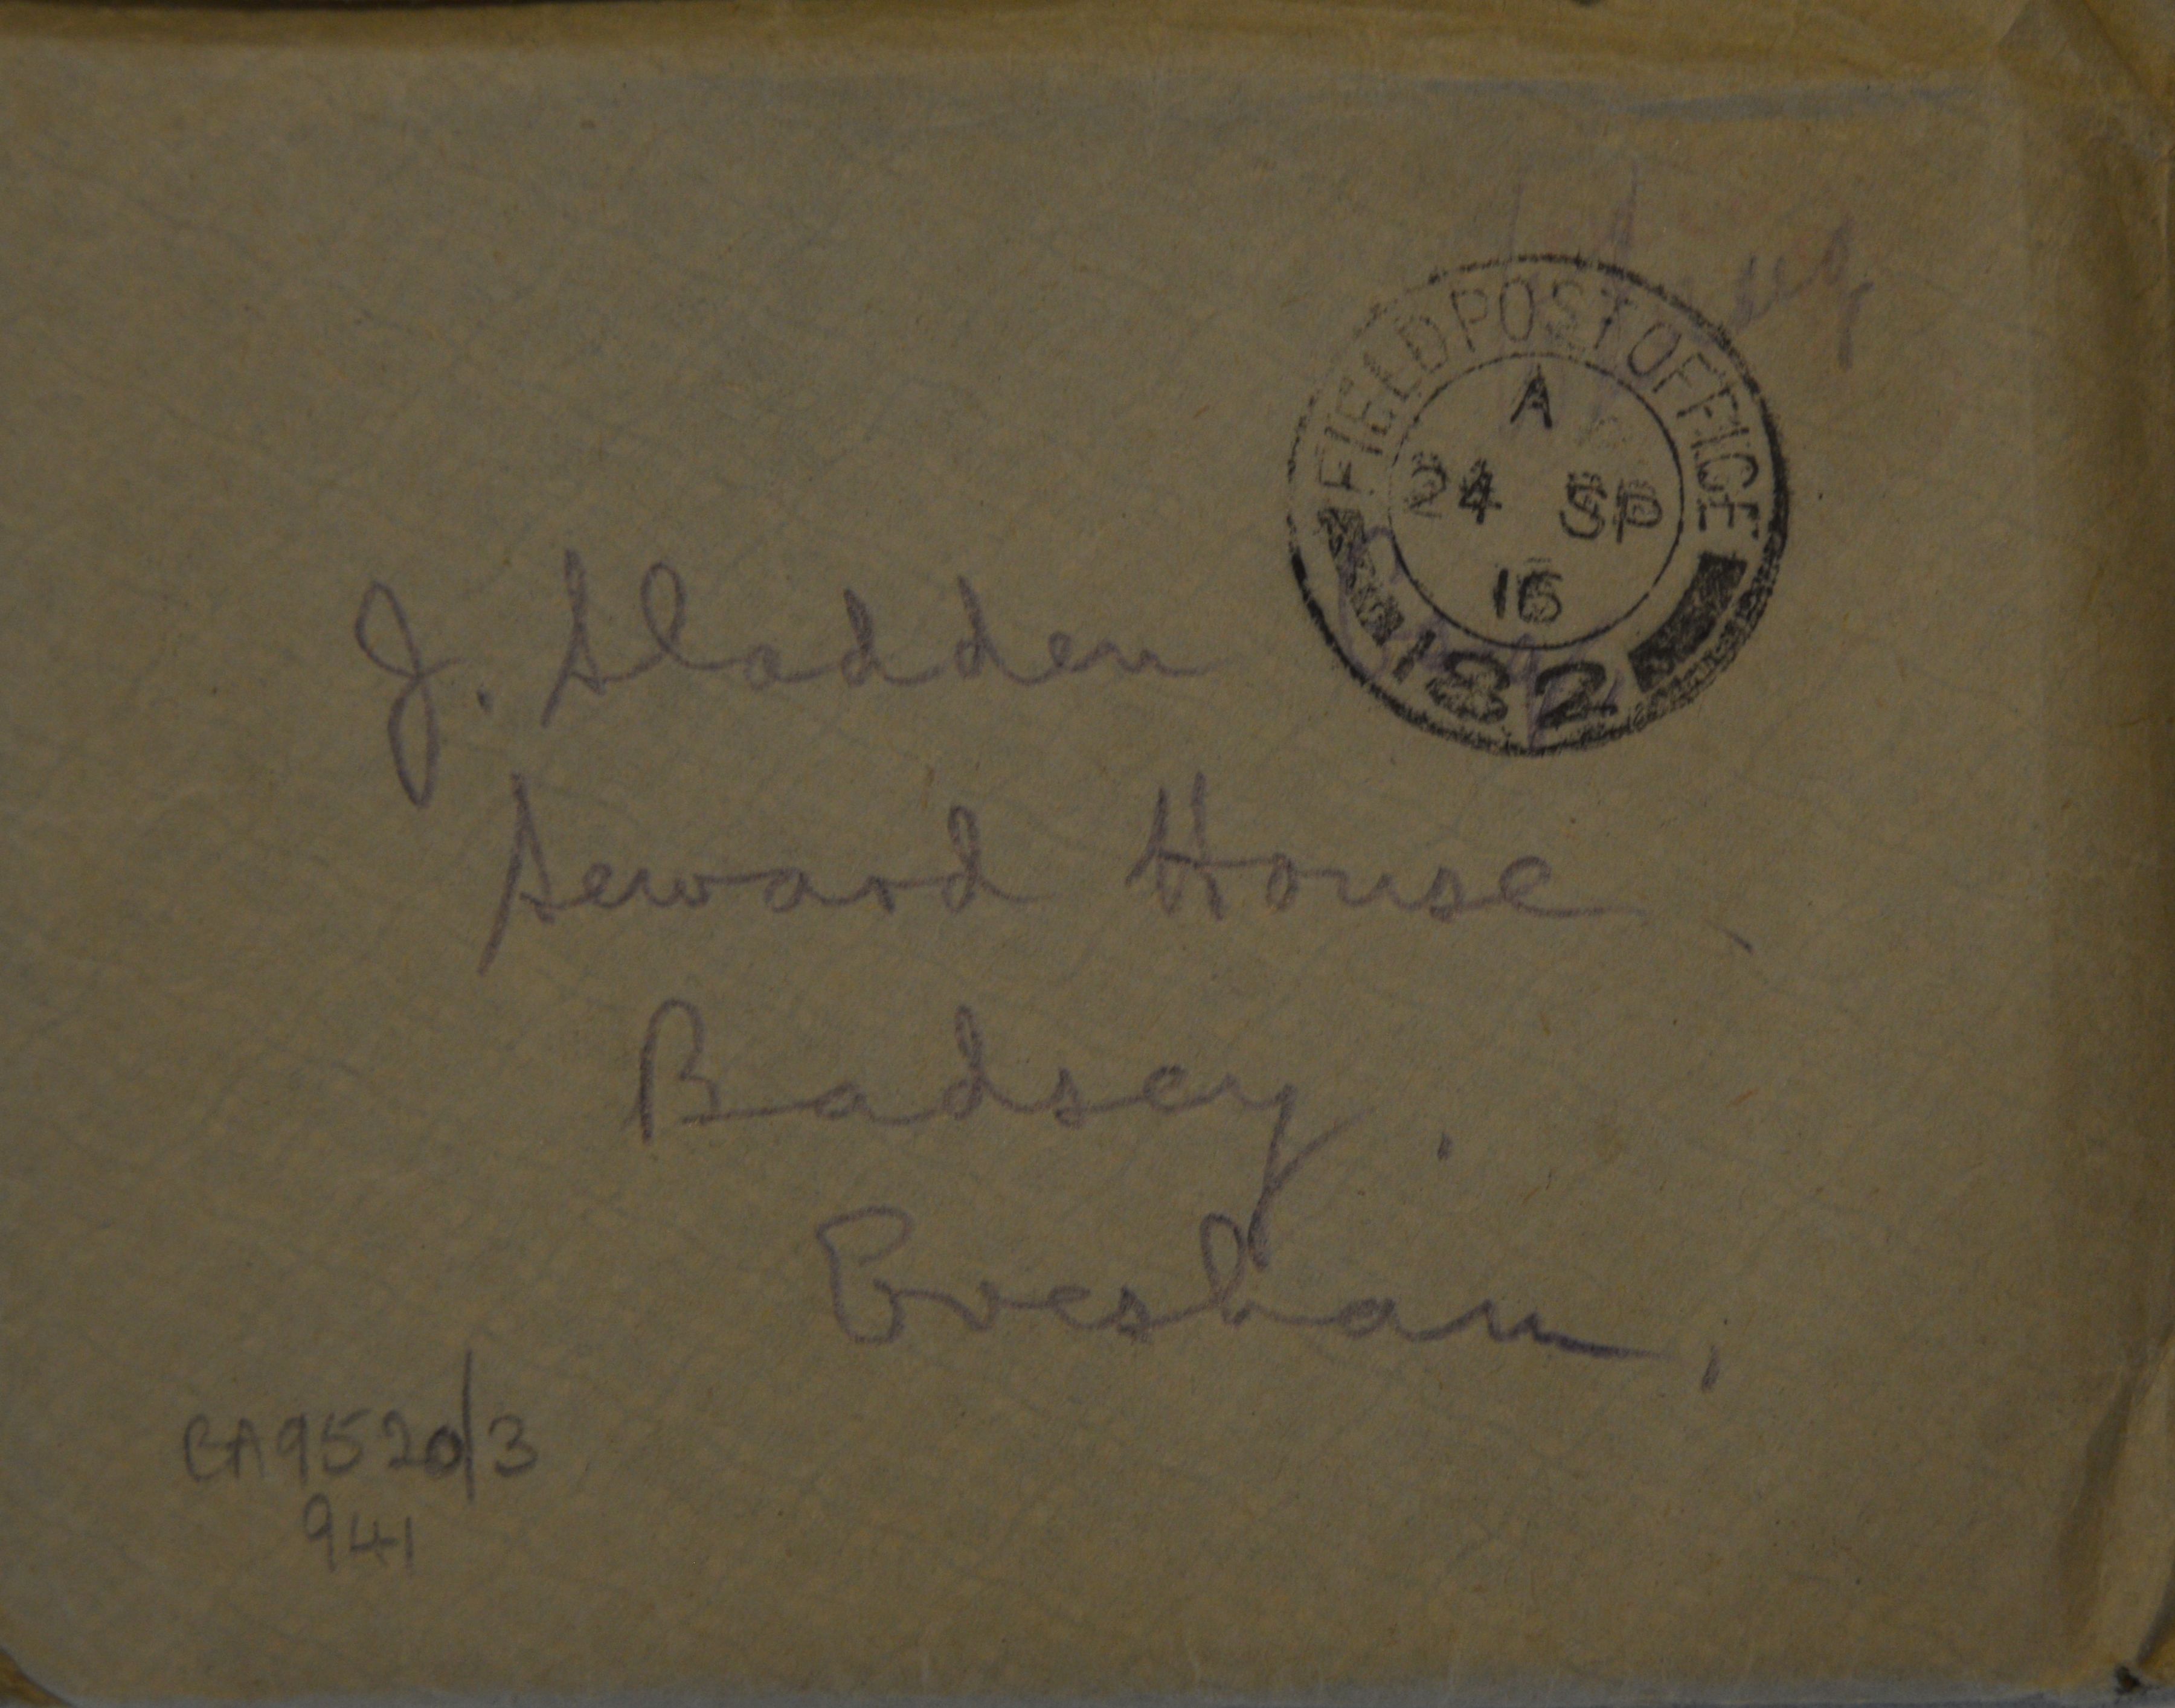 FIELD POST OFFICE
A
24 SP
16
182
J. Sladden
Seward House
Badsey.
Evesham,
BA9520/3
941